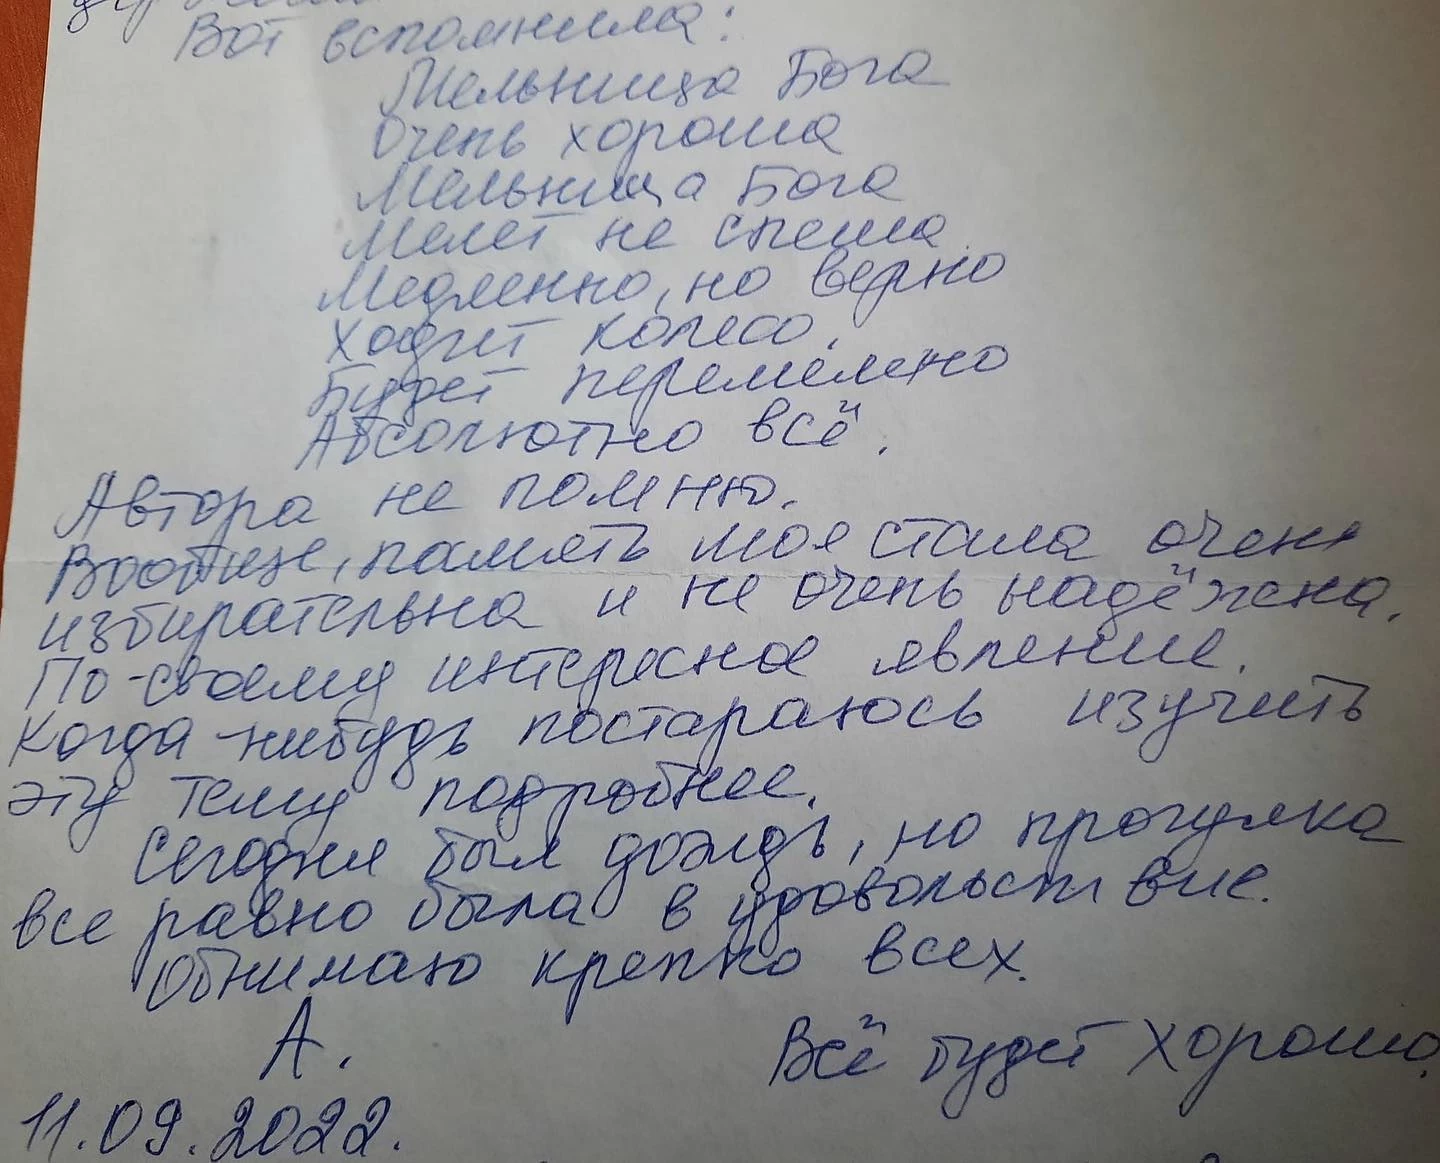 Вот вспомнила:
Мельница Бога
Очень хороша
Мельница Бога
Мелет не спеша
Медленно, но верно
Ходит колесо.
Будет перемелено
Абсолютно всё.
Автора не помню.
Вообще, память моя стала очень
избирательна и не очень надёжна.
По-своему интересное явление.
Когда-нибудь постараюсь изучить
эту тему подробнее.
Сегодня был дождь, но прогулка
все равно была в удовольствие.
Обнимаю крепко всех.
А.
Всё будет хорошо.
11.09.2022.